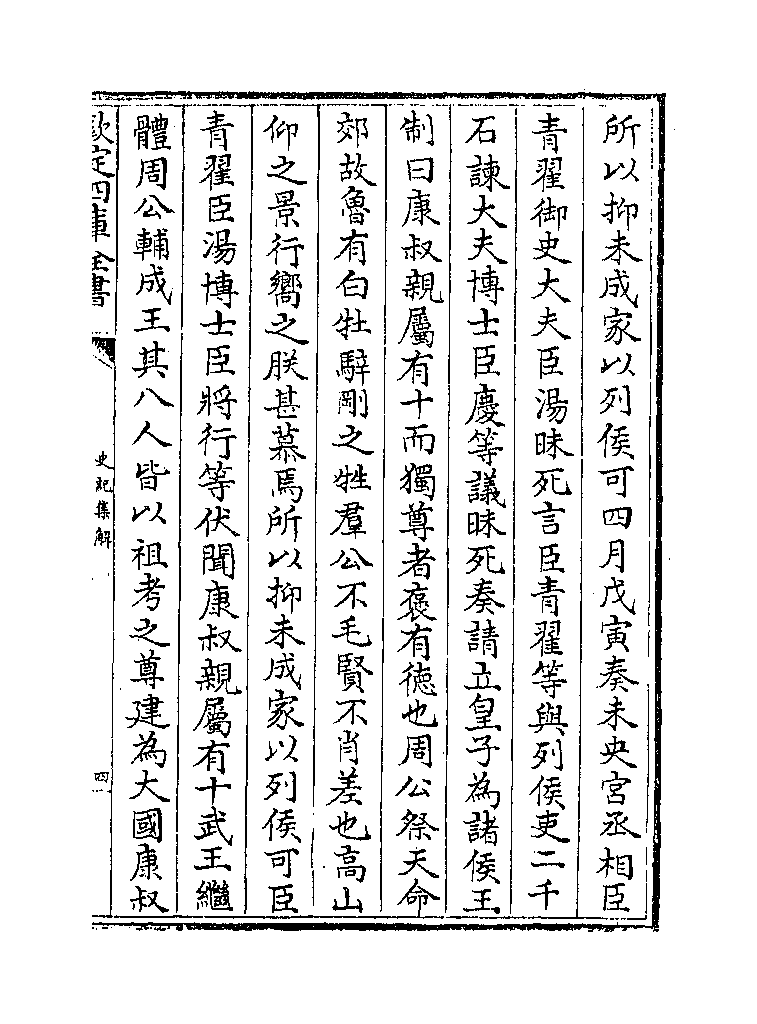 所以抑未成家以列侯可四月戊寅奏未央宮丞相臣
青翟御史大夫臣湯昧死言臣青翟等與列侯吏二千
石諫大夫博士臣慶等議昧死奏請立皇子為諸侯王
制曰康叔親屬有十而獨尊者褒有徳也周公祭天命
郊故魯有白牡騂剛之牲羣公不毛賢不肖差也高山
仰之景行嚮之朕甚慕焉所以抑未成家以列侯可臣
青翟臣湯博士臣將行等伏聞康叔親屬有十武王繼
體周公輔成王其八人皆以祖考之尊建為大國康叔
欽定四庫全書
史記集解
四